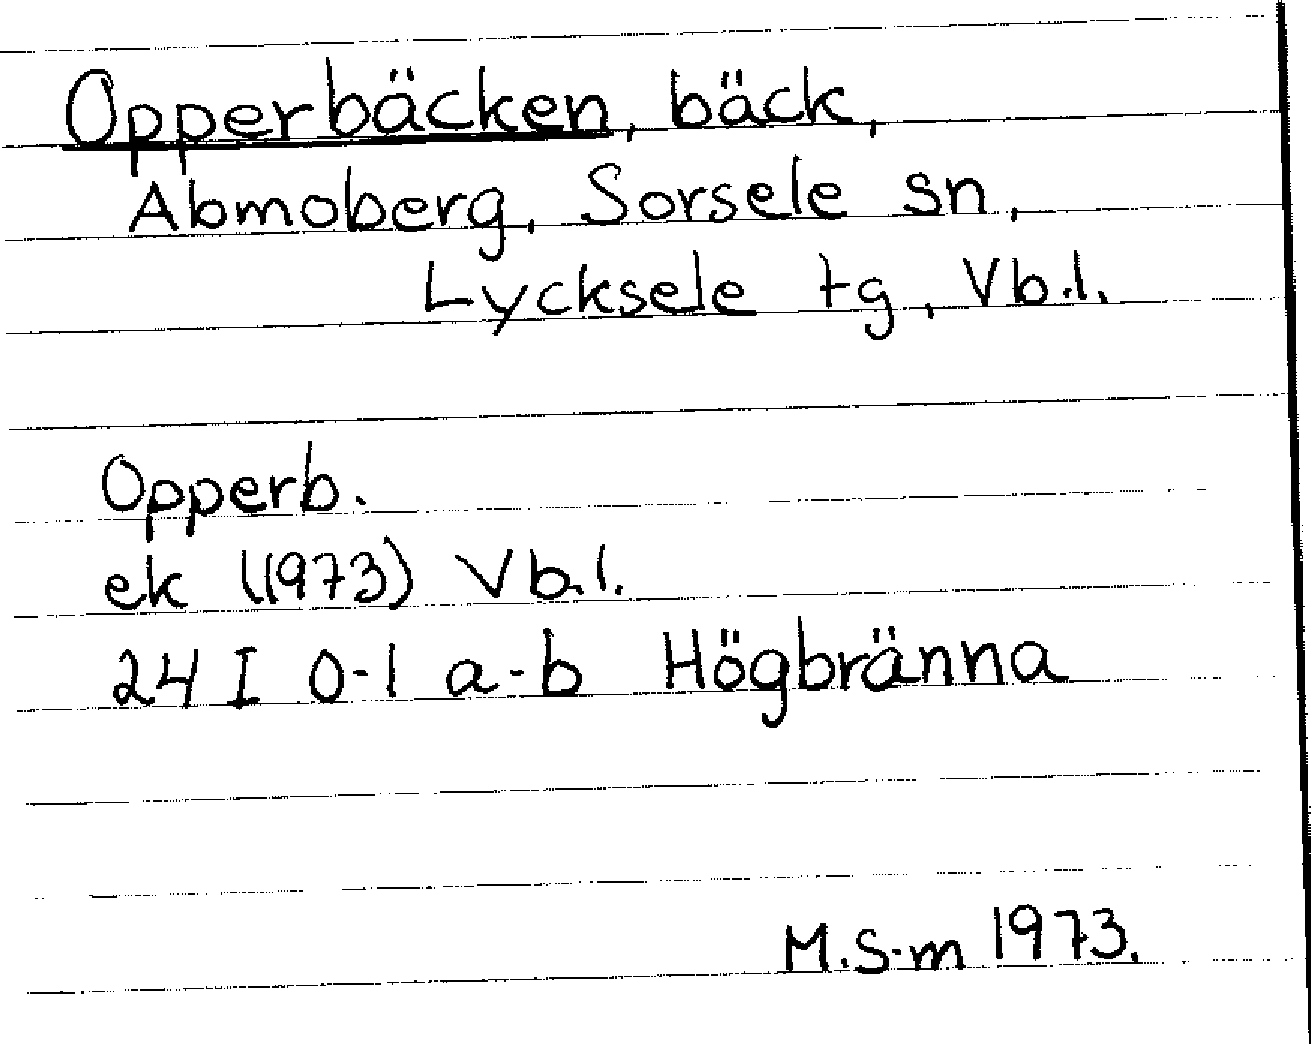 Opperbäcken, bäck,
Abmoberg, Sorsele sn,
Lycksele tg, Vb.l.
Opperb.
ek (1973) Vb.l.
24 I 0-1 a-b Högbränna
M.S-m 1973.